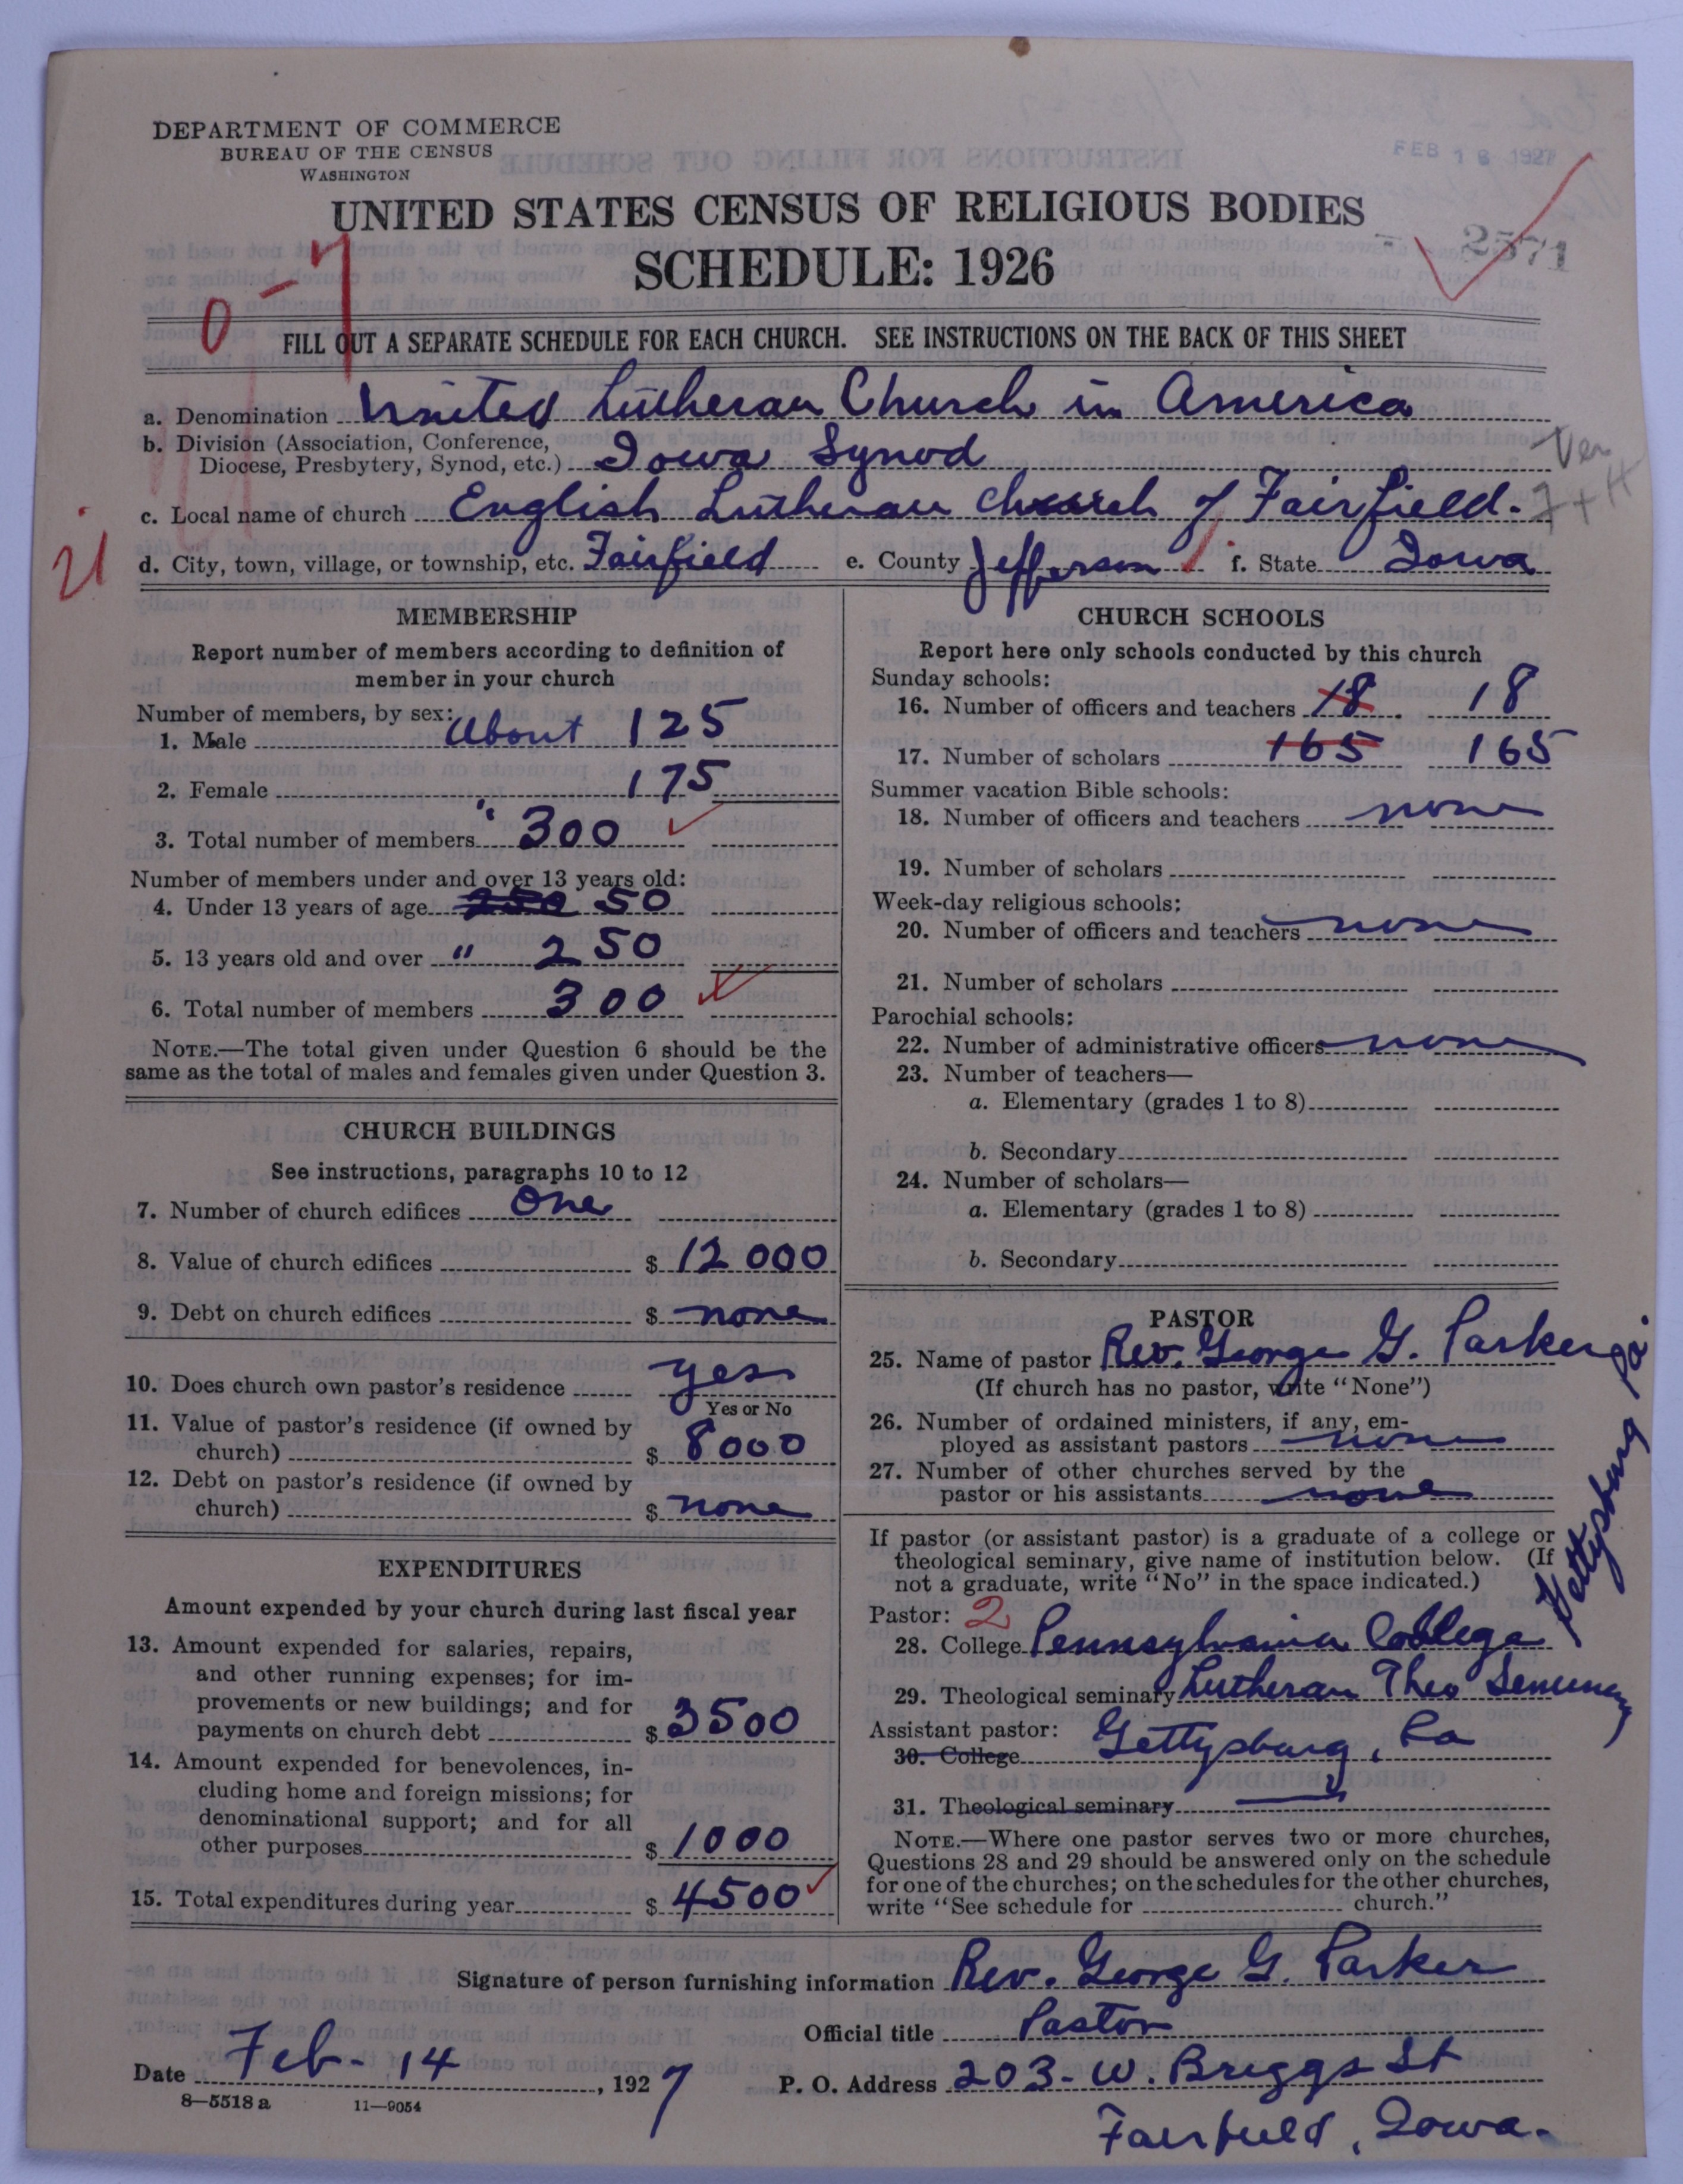 DEPARTMENT OF COMMERCE
BUREAU OF THE CENSUS
WASHINGTON
FEB 18 1927
UNITED STATES CENSUS OF RELIGIOUS BODIES
2571
SCHEDULE: 1926
0-7
FILL OUT A SEPARATE SCHEDULE FOR EACH CHURCH. SEE INSTRUCTIONS ON THE BACK OF THIS SHEET
a. Denomination United Lutheran Church in America
b. Division (Association, Conference,
Diocese, Presbytery, Synod, etc.) Iowa Synod
Ver
c. Local name of church English Lutheran Church of Fairfield.
7+H
21
d. City, town, village, or township, etc. Fairfield e. County Jefferson f. State Iowa
MEMBERSHIP
Report number of members according to definition of
member in your church
Number of members, by sex:
1. Male About 125
2. Female " 175
3. Total number of members 300
Number of members under and over 13 years old:
4. Under 13 years of age 250 50
5. 13 years old and over " 250
6. Total number of members 300
NOTE.—The total given under Question 6 should be the
same as the total of males and females given under Question 3.
CHURCH BUILDINGS
See instructions, paragraphs 10 to 12
7. Number of church edifices One
8. Value of church edifices $ 12000
9. Debt on church edifices $ none
10. Does church own pastor's residence yes
Yes or No
11. Value of pastor's residence (if owned by
church) $ 8000
12. Debt on pastor's residence (if owned by
church) $ none
EXPENDITURES
Amount expended by your church during last fiscal year
13. Amount expended for salaries, repairs,
and other running expenses; for im-
provements or new buildings; and for
payments on church debt $ 3500
14. Amount expended for benevolences, in-
cluding home and foreign missions; for
denominational support; and for all
other purposes $ 1000
15. Total expenditures during year $ 4500
CHURCH SCHOOLS
Report here only schools conducted by this church
Sunday schools:
16. Number of officers and teachers 18 18
17. Number of scholars 165 165
Summer vacation Bible schools:
18. Number of officers and teachers none
19. Number of scholars
Week-day religious schools:
20. Number of officers and teachers none
21. Number of scholars
Parochial schools:
22. Number of administrative officers none
23. Number of teachers—
a. Elementary (grades 1 to 8)
b. Secondary
24. Number of scholars—
a. Elementary (grades 1 to 8)
b. Secondary
PASTOR
25. Name of pastor Rev. George G. Parker
(If church has no pastor, write "None")
26. Number of ordained ministers, if any, em-
ployed as assistant pastors none
27. Number of other churches served by the
pastor or his assistants none
If pastor (or assistant pastor) is a graduate of a college or
theological seminary, give name of institution below. (If
not a graduate, write "No" in the space indicated.)
Pastor: 2
28. College Pennsylvania College
Gettysburg Pa.
29. Theological seminary Lutheran Theo Seminary
Assistant pastor:
30. College Gettysburg, Pa
31. Theological seminary
NOTE.—Where one pastor serves two or more churches,
Questions 28 and 29 should be answered only on the schedule
for one of the churches; on the schedules for the other churches,
write "See schedule for church."
Signature of person furnishing information Rev. George G. Parker
Official title Pastor
Date Feb. 14, 1927
P. O. Address 203-W. Briggs St
Fairfield, Iowa.
8—5518 a 11—9054